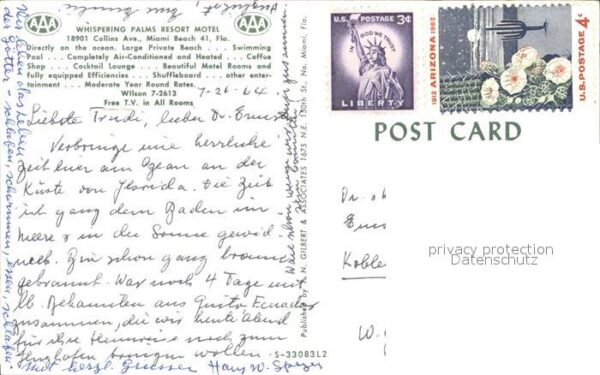 WHISPERING PALMS RESORT MOTEL
18901 Collins Ave., Miami Beach 41, Fla.
Directly on the ocean. Large Private Beach . . . Swimming
Pool . . . Completely Air-Conditioned and Heated . . . Coffee
Shop . . . Cocktail Lounge . . . Beautiful Motel Rooms and
fully equipped Efficiencies . . . Shuffleboard . . . other enter-
tainment . . . Moderate Year Round Rates.
Wilson 7-2613
Free T.V. in All Rooms
AAA
AAA
7-26-64
Liebste Trudi, lieber Dr. Ernst
Verbringe eine herrliche
Zeit hier am Ozean an der
Küste von Florida. Die Zeit
ist ganz dem Baden im
Meere & in der Sonne gewid-
met. Bin schon ganz braun
gebrannt. War noch 4 Tage mit
lb. Bekannten aus Ecuador
zusammen, die wir heute Abend
für ihre Heimreise noch zum
Flughafen bringen wollen.
Mit herzl. Gruessen Hans W.
Hier leben das Leben
der Götter - schlafen, schwimmen, essen, schlafen
Published by A. N. GILBERT & ASSOCIATES 1675 N.E. 130th St., No. Miami, Fla.
S-33083L2
U.S. POSTAGE 3¢
IN GOD WE TRUST
LIBERTY
1912 ARIZONA 1962
U.S. POSTAGE 4¢
POST CARD
Dr.
Koble
W.
privacy protection
Datenschutz